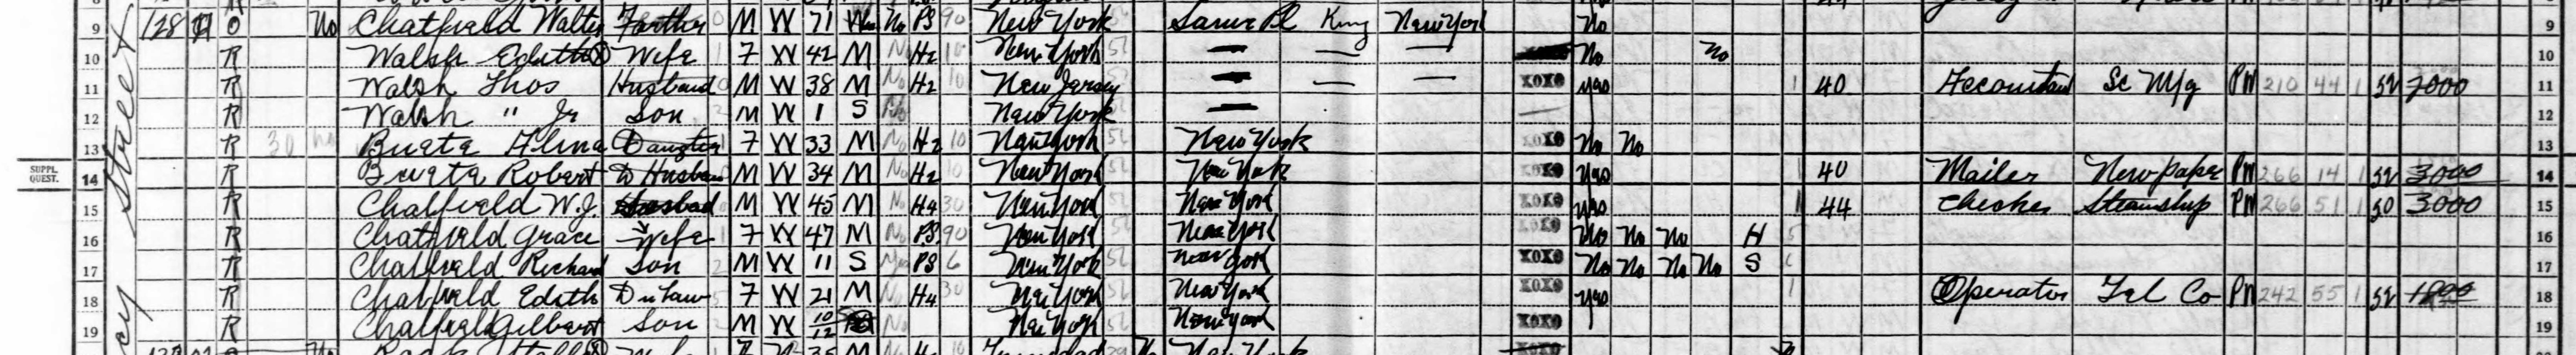 9 128 O No Chatfield Walter Farther 0 M W 71 No PS 90 New York Same Pl King New York No 9
10 R Walsh Edith Wife 1 7 W 42 M No H2 10 New York 56 — — — No No 10
11 R Walsh Thos Husband 0 M W 38 M No H2 10 New Jersey — — — XOXO yes 1 40 Accountant Sc Mfg PW 210 44 1 52 2000 11
12 R Walsh " Jr Son 2 M W 1 S No New York — 12
13 R 30 No Alina Daugter 1 7 W 33 M No H2 10 New York 56 New York XOXO No No 13
SUPPL. QUEST. 14 R Robert D Husban M W 34 M No H2 10 New York 56 New York XOXO yes 1 40 Mailer Newpaper PW 266 14 1 52 3000 14
15 R Chatfield W.J. M W 45 M No H4 30 New York 56 New York XOXO yes 1 44 Checker Steamship PW 266 51 1 50 3000 15
16 R Chatfield Grace Wife 1 7 W 47 M No PS 90 New York 56 New York XOXO No No No H 5 16
17 R Chatfield Richard Son 2 M W 11 S Yes PS 6 New York 56 New York XOXO No No No No S 6 17
18 R Chatfield Edith D in Law 5 7 W 21 M No H4 30 New York 56 New York XOXO yes 1 Operator Tel Co PW 242 55 1 52 18
19 R Chatfield Gilbert Son 2 M W 10/12 No New York 56 New York XOXO 19